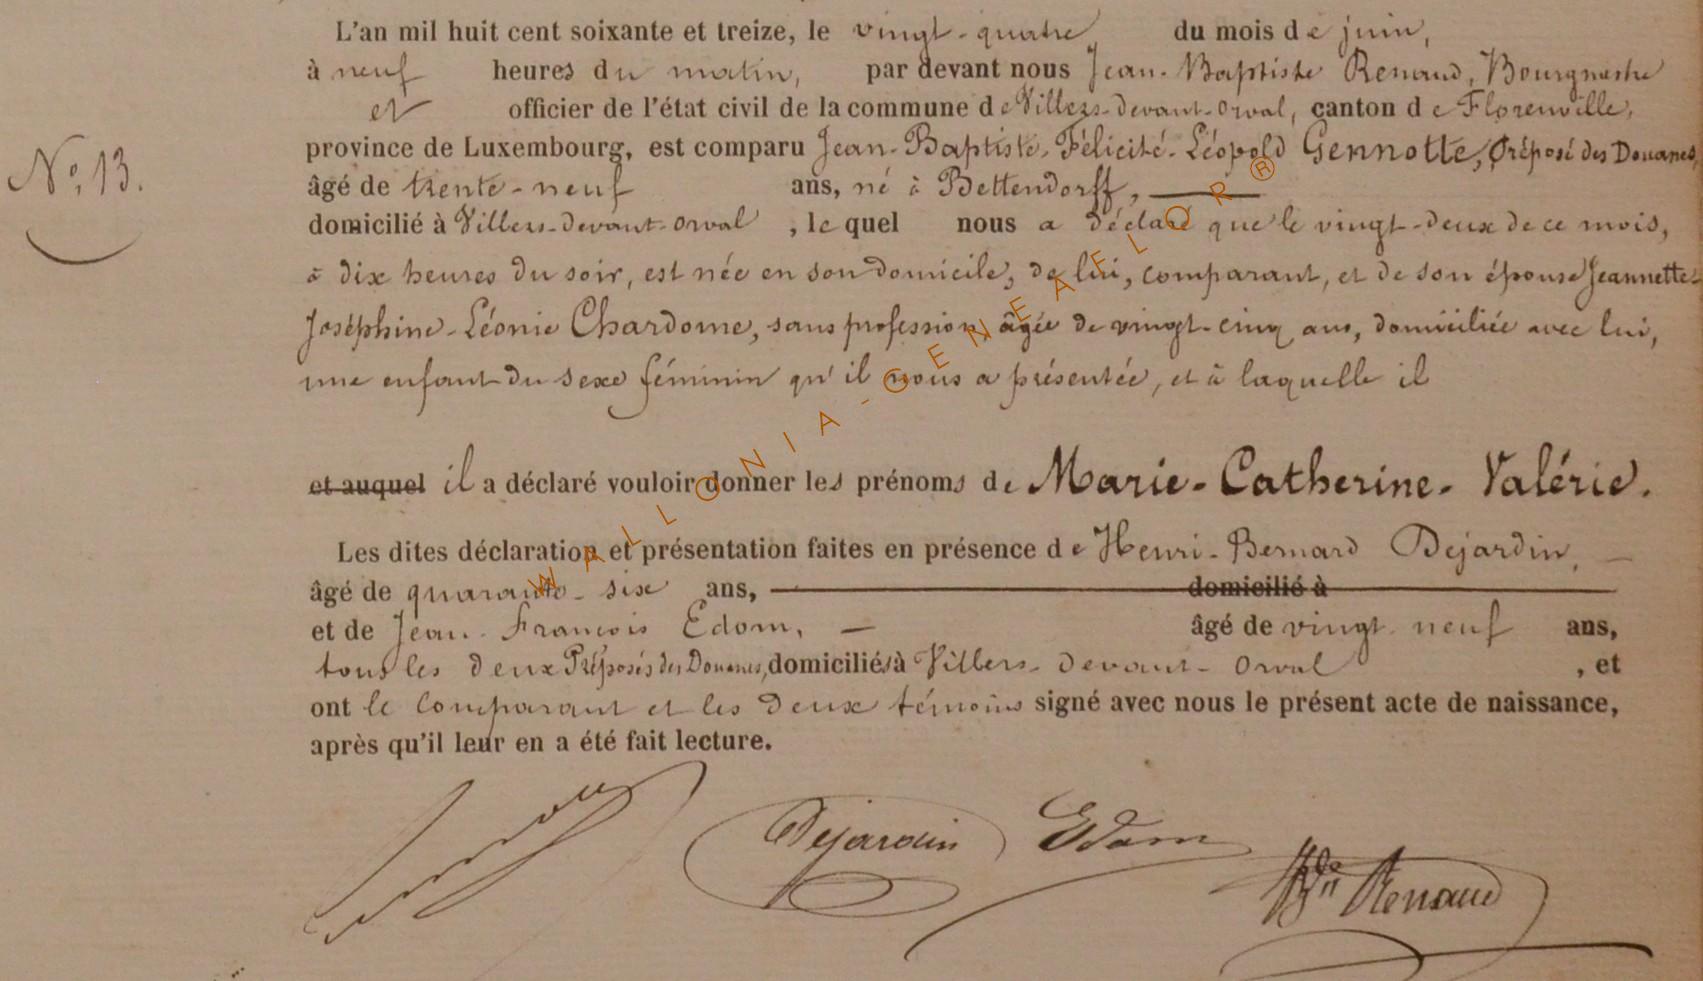 L'an mil huit cent soixante et treize, le vingt-quatre du mois de juin,
à neuf heures du matin, par devant nous Jean-Baptiste Renaud, Bourgmestre
et officier de l'état civil de la commune de Villers-devant-Orval, canton de Florenville,
province de Luxembourg, est comparu Jean-Baptiste-Félicité-Léopold Gennotte, Préposé des Douanes,
N°. 13.
âgé de trente-neuf ans, né à Bettendorff,
domicilié à Villers-devant-Orval, lequel nous a déclaré que le vingt-deux de ce mois,
à dix heures du soir, est née en son domicile, de lui, comparant, et de son épouse Jeannette-
Joséphine-Léonie Chardome, sans profession, âgée de vingt-cinq ans, domiciliée avec lui,
une enfant du sexe féminin qu'il nous a présentée, et à laquelle il
et auquel il a déclaré vouloir donner les prénoms de Marie-Catherine-Valérie.
Les dites déclaration et présentation faites en présence de Henri-Bernard Dejardin,
âgé de quarante-six ans, domicilié à
et de Jean-François Edom, âgé de vingt-neuf ans,
tous les deux Préposés des Douanes, domiciliés à Villers-devant-Orval, et
ont le comparant et les deux témoins signé avec nous le présent acte de naissance,
après qu'il leur en a été fait lecture.
Dejardin Edom
Renaud
WALLONIA-GENEAFLOR®